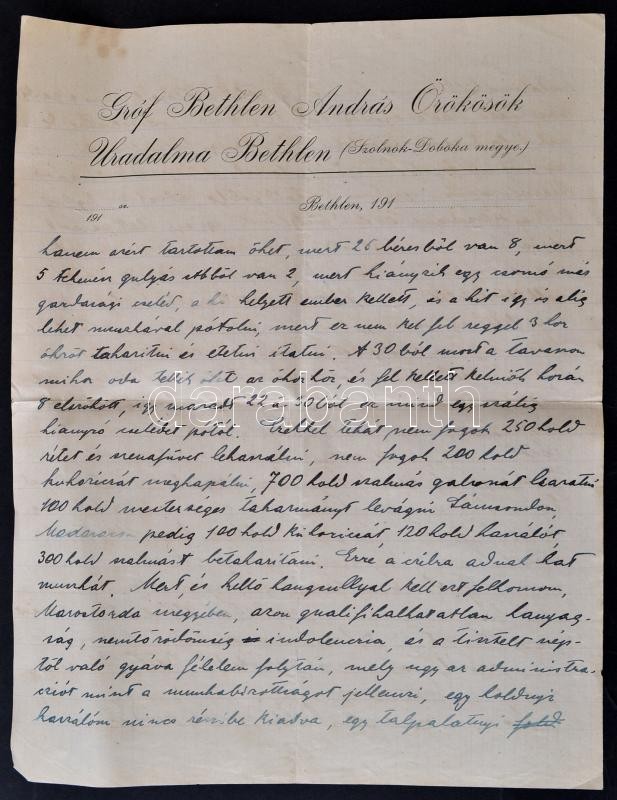 Gróf Bethlen András Örökösök
Uradalma Bethlen (Szolnok-Doboka megye.)
191 sz.
Bethlen, 191
hanem azért tartottam őket, mert 26 béresből van 8, mert
5 tehenén gulyás ebből van 2, mert hiányzik egy csomó más
gazdasági cseléd, a ki helyett ember kellett, és a kit így is alig
lehet munkával pótolni, mert ez nem kel fel reggel 3 kor
ökröt takarítni és etetni itatni. A 30 ból most a tavaszon
mikor oda tették őket az ökörhöz, és fel kellett kelniök korán
8 elszökött, így maradt 22 a 30 ból ez mind egy szálig
hiányzó cselédet pótol. Ezekkel tehát nem fogok 250 hold
rétet és szénafüvet lekaszálni, nem fogok 200 hold
kukoricát megkapálni, 700 hold szalmás gabonát learatni
100 hold mesterséges takarmányt levágni Sámsondon,
Madarason pedig 100 hold kukoricát 120 hold kaszálót
300 hold szalmást betakarítani. Erre a célra adnak hat
munkát. Mert és kellő hangsullyal kell ezt felhoznom,
Marostorda megyében, azon qualifikálhatatlan hanyag-
ság, nemtörődömség indolenczia, és a tisztelt nép-
től való gyáva félelem folytán, mely ugy az administra-
cziót mint a munkabizottságot jellemzi, egy holdnyi
kaszálóm nincs részibe kiadva, egy talpalatnyi föld
darabanth